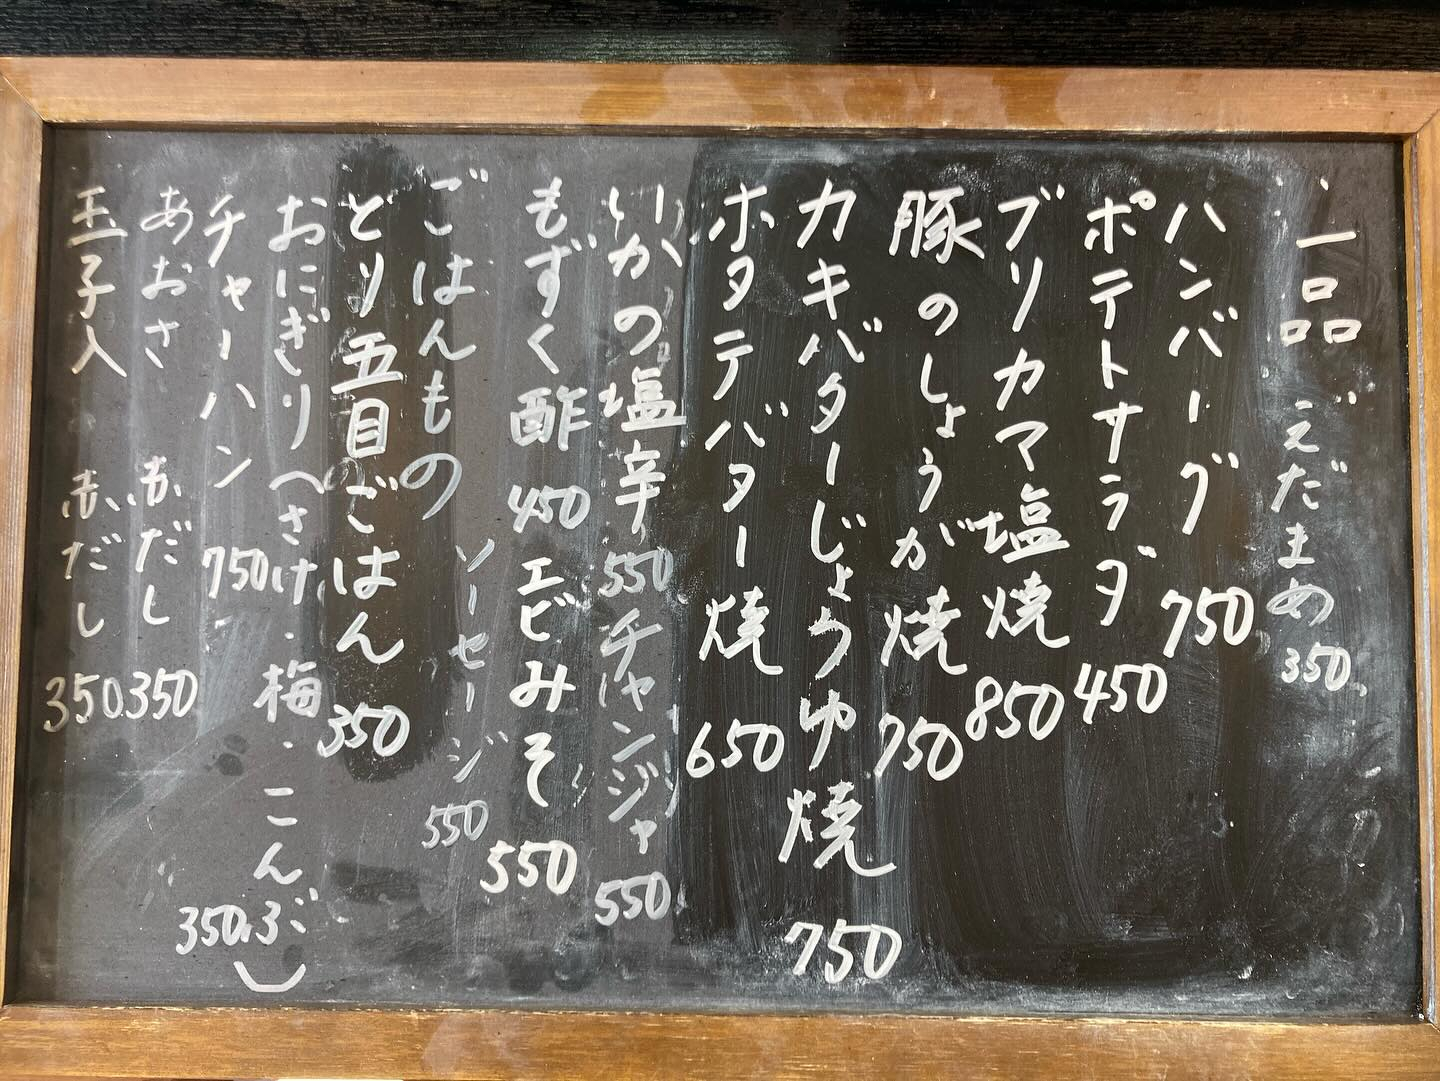 一品 えだまめ 350
ハンバーグ 750
ポテトサラダ 450
ブリカマ塩焼 850
豚のしょうが焼 750
カキバターじょうゆ焼 750
ホタテバター焼 650
いかの塩辛 550 チャンジャ 550
もずく酢 450 エビみそ 550
ごはんもの ソーセージ 550
とり五目ごはん 350
おにぎり(さけ・梅・こんぶ) 350
チャーハン 750
あおさ 赤だし 350
玉子入 赤だし 350